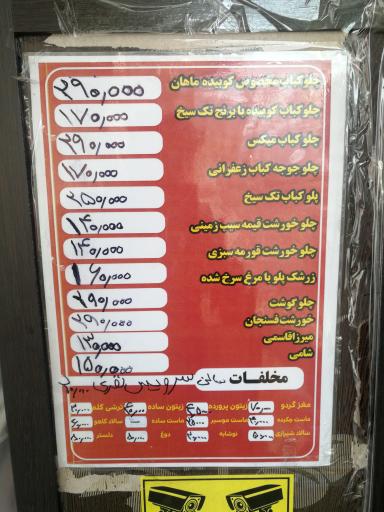 چلو کباب مخصوص کوبیده ماهان ۲۹۰,۰۰۰
چلو کباب کوبیده با برنج تک سیخ ۱۷۰,۰۰۰
چلو کباب میکس ۲۹۰,۰۰۰
چلو جوجه کباب زعفرانی ۱۷۰,۰۰۰
پلو کباب تک سیخ ۲۵۰,۰۰۰
چلو خورشت قیمه سیب زمینی ۱۴۰,۰۰۰
چلو خورشت قورمه سبزی ۱۴۰,۰۰۰
زرشک پلو با مرغ سرخ شده ۱۶۰,۰۰۰
چلو گوشت ۲۹۰,۰۰۰
خورشت فسنجان ۲۹۰,۰۰۰
میرزا قاسمی ۱۳۰,۰۰۰
شامی ۱۵۰,۰۰۰
مخلفات سالنی سرویس نفری ۲۰,۰۰۰
مغز گردو ۷۰,۰۰۰ زیتون پرورده زیتون ساده ترشی کلم
ماست چکیده ماست موسیر ماست ساده سالاد کاهو
سالاد شیرازی نوشابه دوغ دلستر